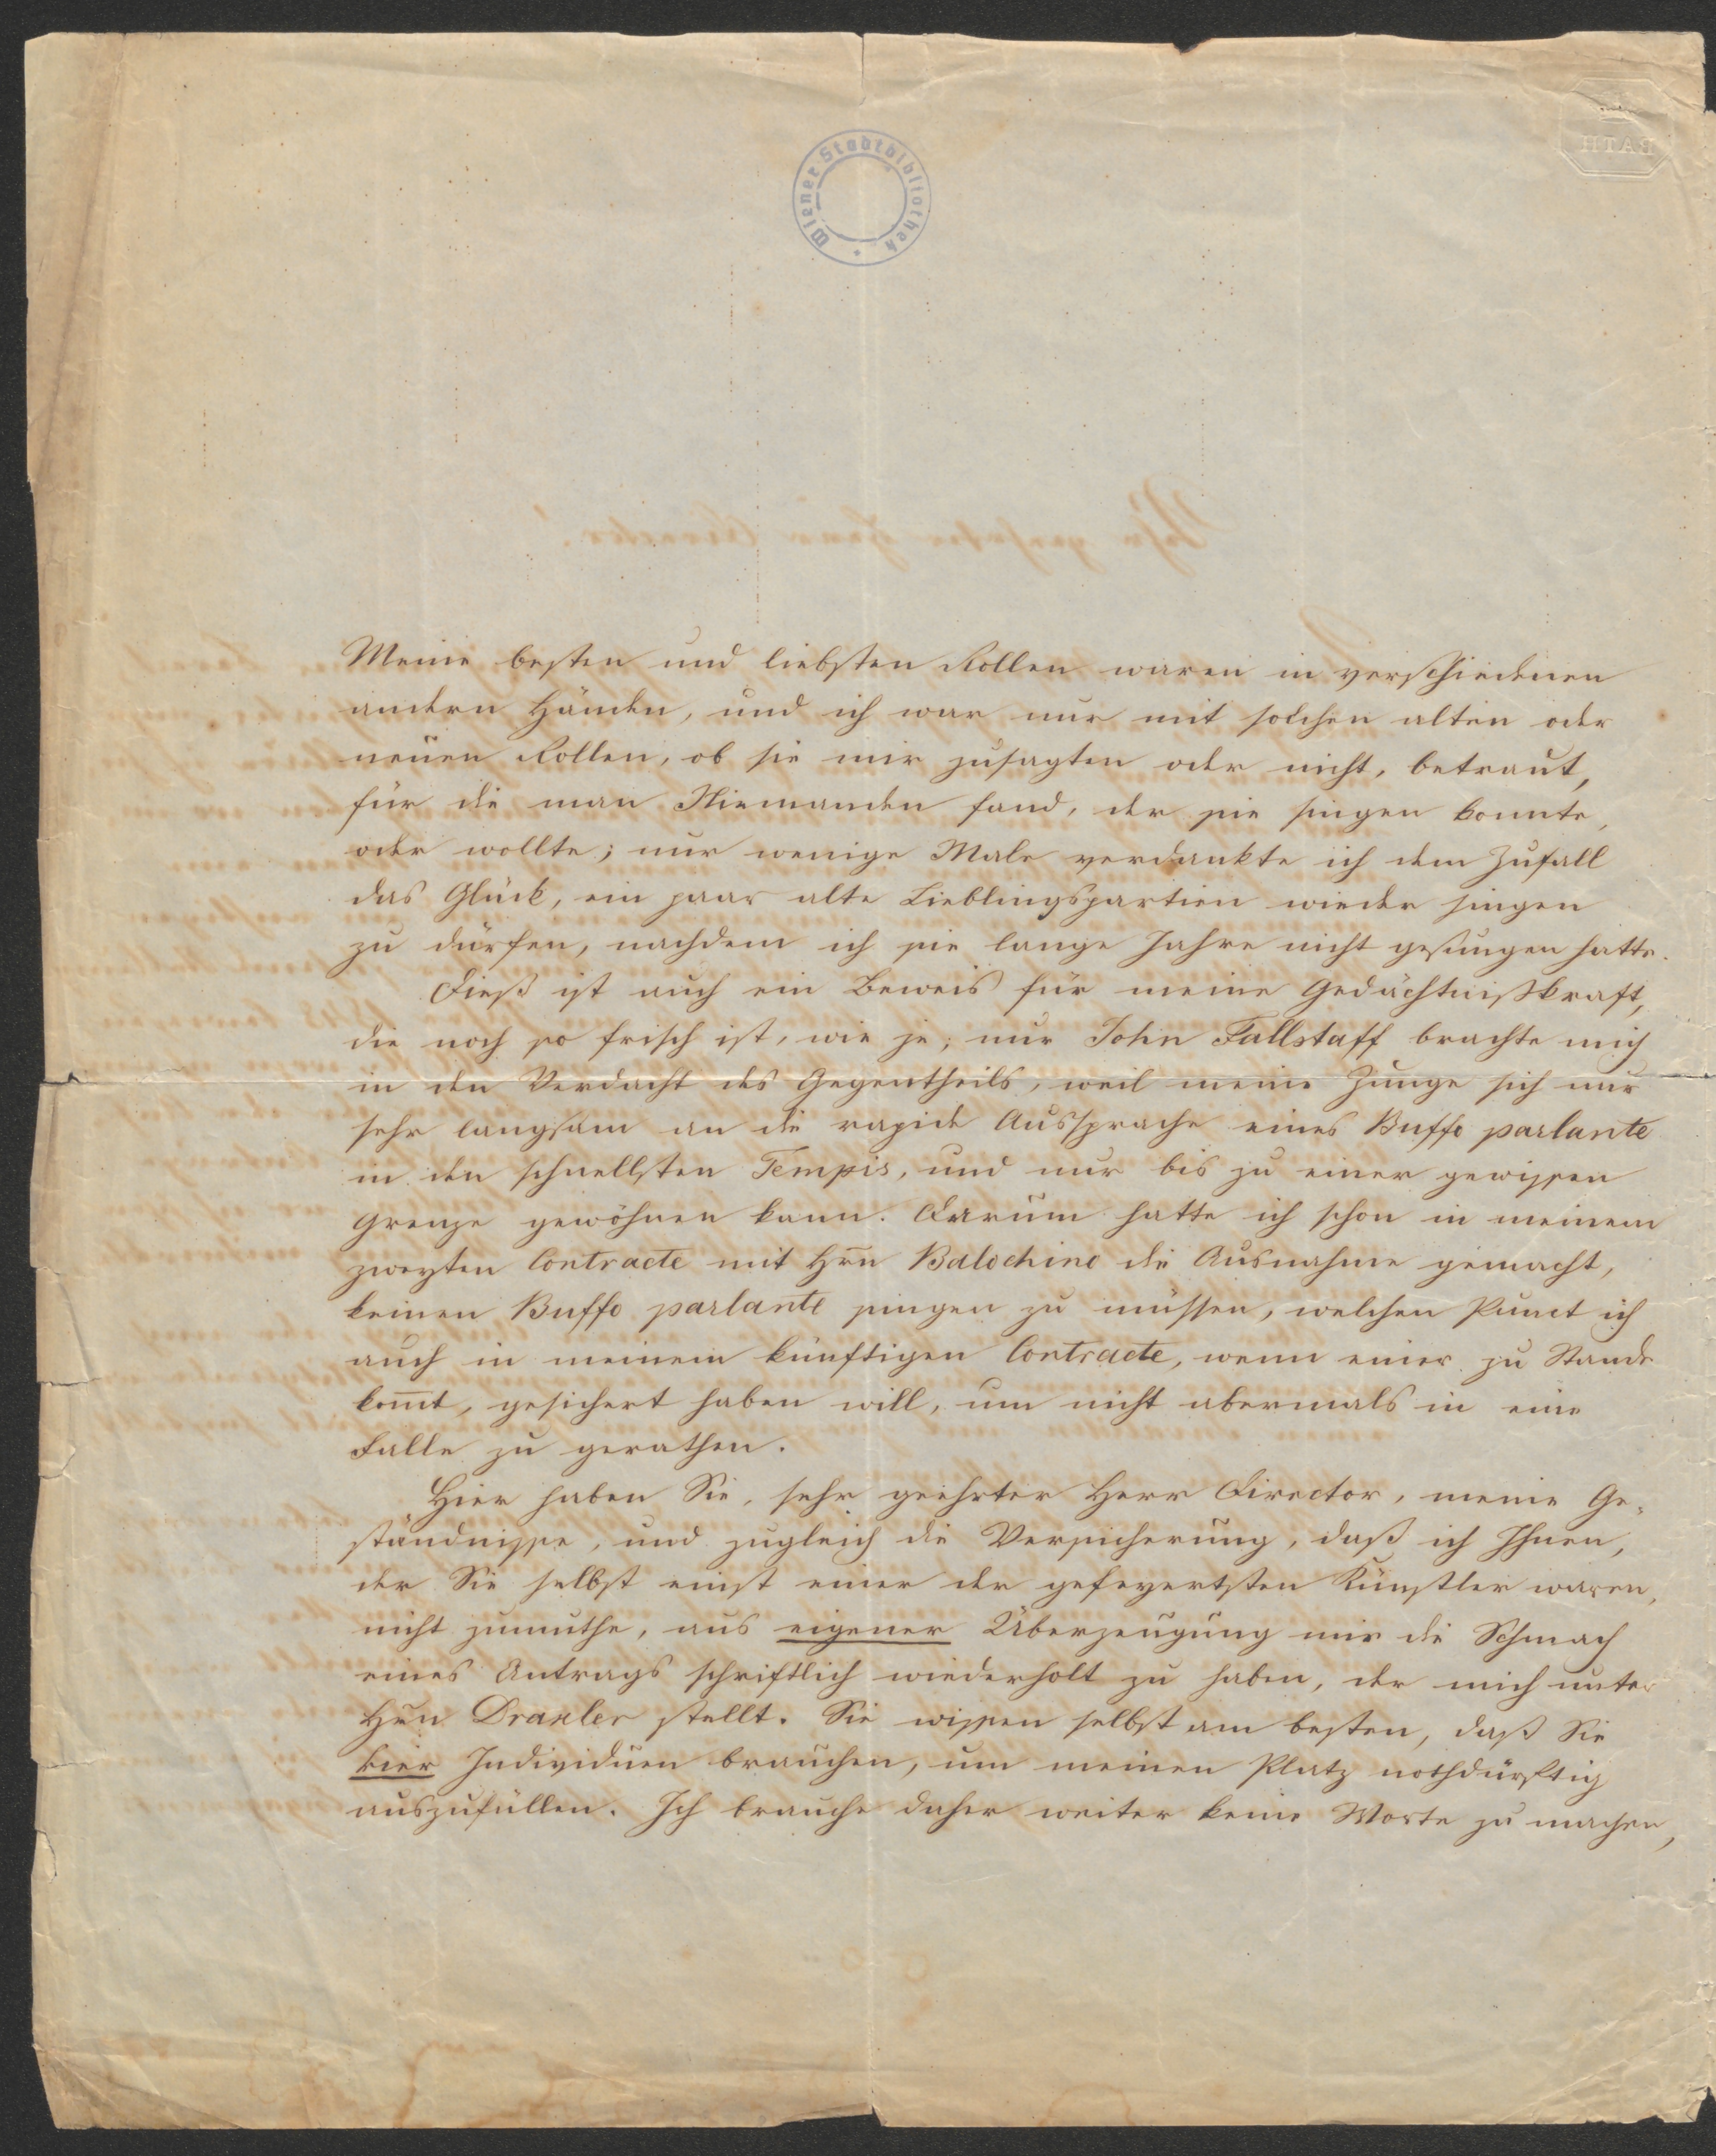 Wiener Stadtbibliothek
RATH
Meine besten und liebsten Rollen waren in verschiedenen
andern Händen, und ich war nur mit solchen alten oder
neuen Rollen, ob sie mir zusagten oder nicht, betraut,
für die man Niemanden fand, der sie singen konnte,
oder wollte; nur wenige Male verdankte ich dem Zufall
das Glück, ein paar alte Lieblingspartien wieder singen
zu dürfen, nachdem ich sie lange Jahre nicht gesungen hatte.
Dieß ist auch ein Beweis für meine Gedächtnißkraft,
die noch so frisch ist, wie je; nur John Fallstaff brachte mich
in den Verdacht des Gegentheils, weil meine Zunge sich nur
sehr langsam an die rapide Aussprache eines Buffo parlante
in den schnellsten Tempis, und nur bis zu einer gewissen
Grenze gewöhnen kann. Darum hatte ich schon in meinem
zweyten Contracte mit Hrn Balochino die Ausnahme gemacht,
keinen Buffo parlante singen zu müssen, welchen Punct ich
auch in meinem künftigen Contracte, wenn einer zu Stande
kom̅t, gesichert haben will, um nicht abermals in eine
Falle zu gerathen.
Hier haben Sie, sehr geehrter Herr Director, meine Ge-
ständnisse, und zugleich die Versicherung, daß ich Ihnen,
der Sie selbst einst einer der gefeyertsten Künstler waren,
nicht zumuthe, aus eigener Überzeugung mir die Schmach
eines Antrags schriftlich wiederholt zu haben, der mich unter
Hrn Draxler stellt. Sie wissen selbst am besten, daß Sie
vier Individuen brauchen, um meinen Platz nothdürftig
auszufüllen. Ich brauche daher weiter keine Worte zu machen,